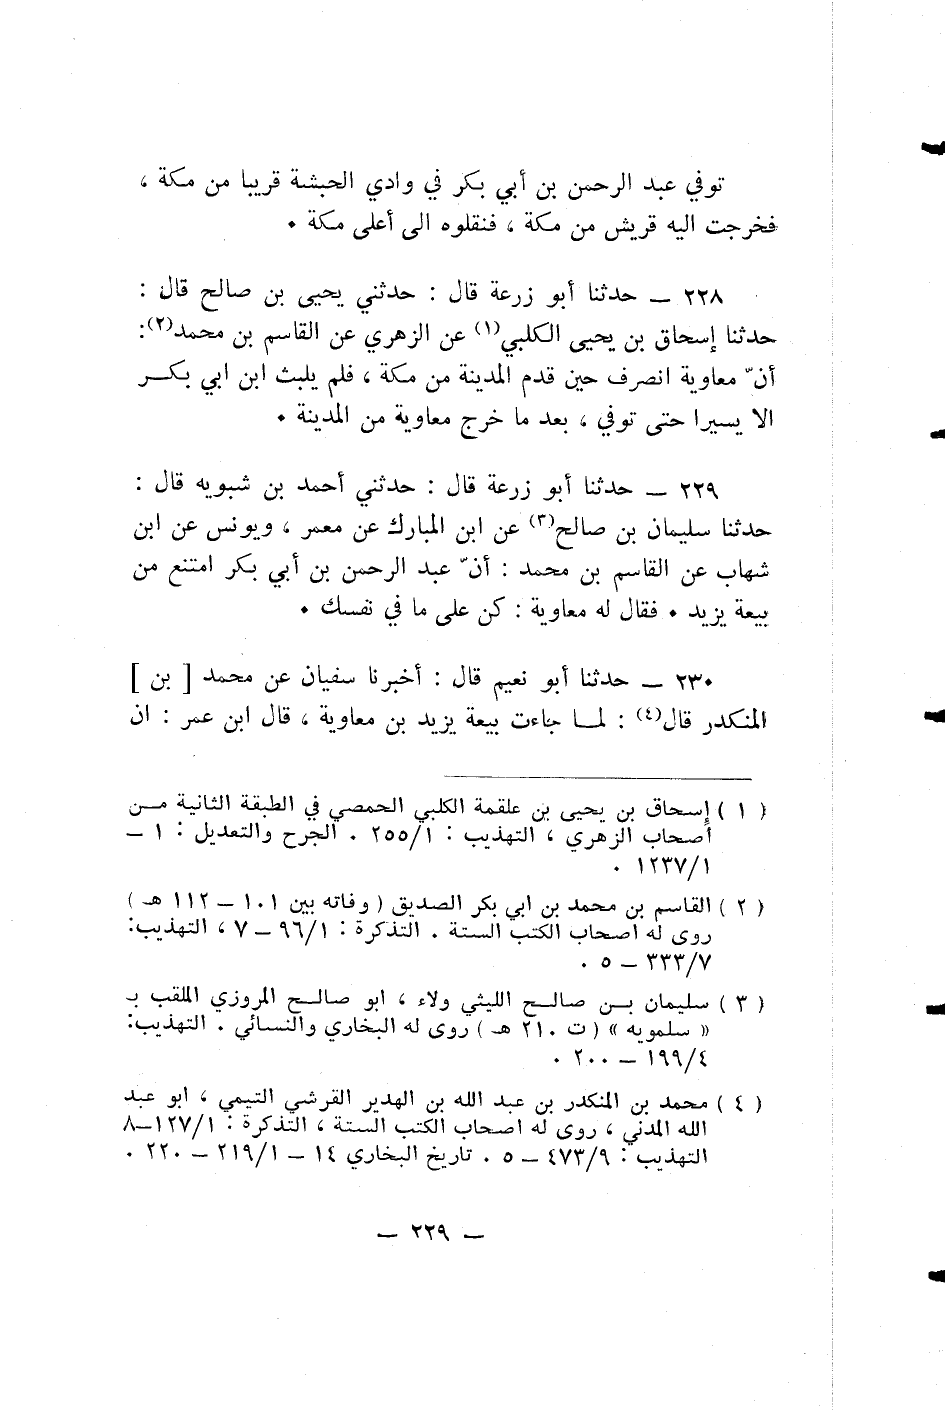 توفي عبد الرحمن بن أبي بكر في وادي الحبشة قريبا من مكة ،
فخرجت اليه قريش من مكة ، فنقلوه الى أعلى مكة •
٢٢٨ ــ حدثنا أبو زرعة قال : حدثني يحيى بن صالح قال :
حدثنا إسحاق بن يحيى الكلبي(١) عن الزهري عن القاسم بن محمد(٢):
أنّ معاوية انصرف حين قدم المدينة من مكة ، فلم يلبث ابن ابي بكــر
الا يسيرا حتى توفي ، بعد ما خرج معاوية من المدينة •
٢٢٩ ــ حدثنا أبو زرعة قال : حدثني أحمد بن شبويه قال :
حدثنا سليمان بن صالح(٣) عن ابن المبارك عن معمر ، ويونس عن ابن
شهاب عن القاسم بن محمد : أنّ عبد الرحمن بن أبي بكر امتنع من
بيعة يزيد • فقال له معاوية : كن على ما في نفسك •
٢٣٠ ــ حدثنا أبو نعيم قال : أخبرنا سفيان عن محمد [ بن ]
المنكدر قال(٤) : لمــا جاءت بيعة يزيد بن معاوية ، قال ابن عمر : ان
( ١ ) إسحاق بن يحيى بن علقمة الكلبي الحمصي في الطبقة الثانية مــن
أصحاب الزهري ، التهذيب : ٢٥٥/١ . الجرح والتعديل : ١ –
١٢٣٧/١ .
( ٢ ) القاسم بن محمد بن ابي بكر الصديق ( وفاته بين ١٠١ – ١١٢ هـ )
روى له اصحاب الكتب الستة . التذكرة : ٩٦/١ – ٧ ، التهذيب:
٣٣٣/٧ – ٥ .
( ٣ ) سليمان بــن صالــح الليثي ولاء ، ابو صالــح المروزي الملقب بـ
« سلمويه » ( ت ٢١٠ هـ ) روى له البخاري والنسائي . التهذيب:
١٩٩/٤ – ٢٠٠ .
( ٤ ) محمد بن المنكدر بن عبد الله بن الهدير القرشي التيمي ، ابو عبد
الله المدني ، روى له اصحاب الكتب الستة ، التذكرة : ١٢٧/١–٨
التهذيب : ٤٧٣/٩ – ٥ . تاريخ البخاري ١٤ – ٢١٩/١ – ٢٢٠ .
– ٢٢٩ –